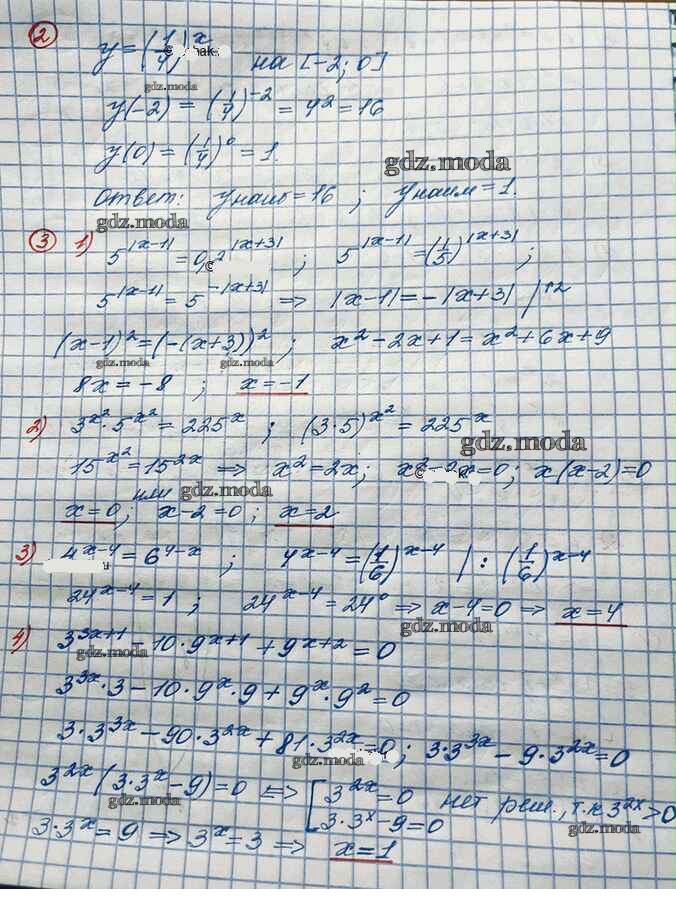 2 y = (1/4)^x на [-2; 0]
gdz.moda
y(-2) = (1/4)^-2 = 4^2 = 16
y(0) = (1/4)^0 = 1.
gdz.moda
Ответ: yнаиб = 16 ; yнаим = 1.
gdz.moda
3 1) 5^|x-1| = 0,2^|x+3| ; 5^|x-1| = (1/5)^|x+3| ;
5^|x-1| = 5^-|x+3| => |x-1| = -|x+3| |↑2
(x-1)^2 = (-(x+3))^2 ; x^2 - 2x + 1 = x^2 + 6x + 9
gdz.moda gdz.moda
8x = -8 ; x = -1
2) 3^x^2 · 5^x^2 = 225^x ; (3·5)^x^2 = 225^x
gdz.moda
15^x^2 = 15^2x => x^2 = 2x; x^2 - 2x = 0; x(x-2) = 0
gdz.moda
x = 0; или x-2 = 0 ; x = 2
3) 4^x-4 = 6^4-x ; 4^x-4 = (1/6)^x-4 | : (1/6)^x-4
24^x-4 = 1 ; 24^x-4 = 24^0 => x-4 = 0 => x = 4
gdz.moda
4) 3^3x+1 - 10·9^x+1 + 9^x+2 = 0
gdz.moda
3^3x · 3 - 10·9^x · 9 + 9^x · 9^2 = 0
3·3^3x - 90·3^2x + 81·3^2x = 0; 3·3^3x - 9·3^2x = 0
gdz.moda
3^2x (3·3^x - 9) = 0 <=> [ 3^2x = 0 нет реш., т.к 3^2x > 0
3·3^x - 9 = 0
gdz.moda gdz.moda
3·3^x = 9 => 3^x = 3 => x = 1
gdz.moda gdz.moda